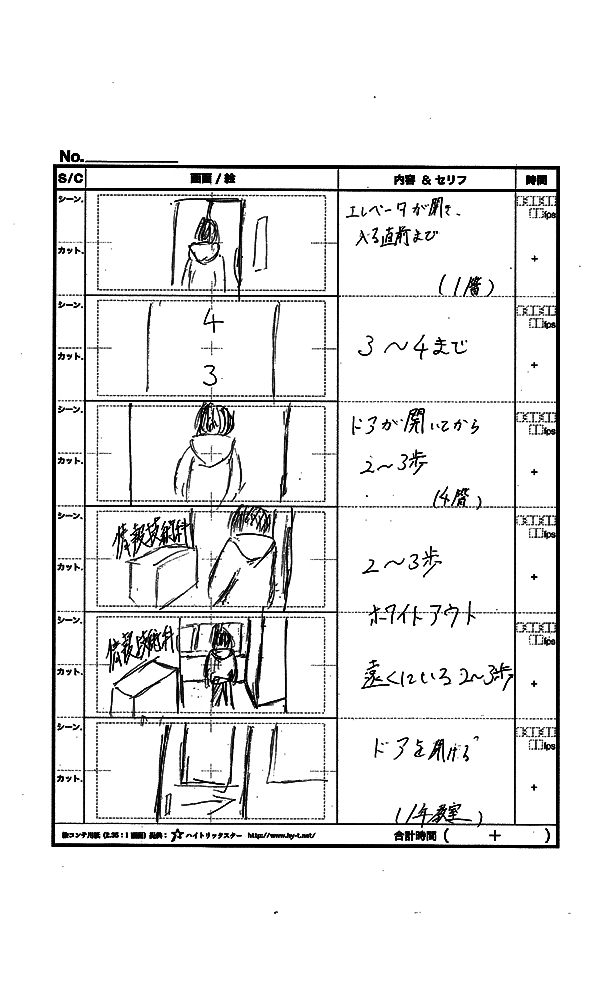 No.
S/C 画面 / 絵 内容 & セリフ 時間
シーン.
カット.
エレベータが開き、
入る直前まで
(1階)
fps
+
シーン.
カット.
4
3
3〜4まで
fps
+
シーン.
カット.
ドアが開いてから
2〜3歩
(4階)
fps
+
シーン.
カット.
情報技術科
2〜3歩
fps
+
ホワイトアウト
シーン.
カット.
情報技術科
遠くにいる 2〜3歩
fps
+
シーン.
カット.
ドアを開ける
(1年教室)
fps
+
絵コンテ用紙 (2.35:1 画面) 提供: ハイトリックスター http://www.hy-t.net/
合計時間 ( + )